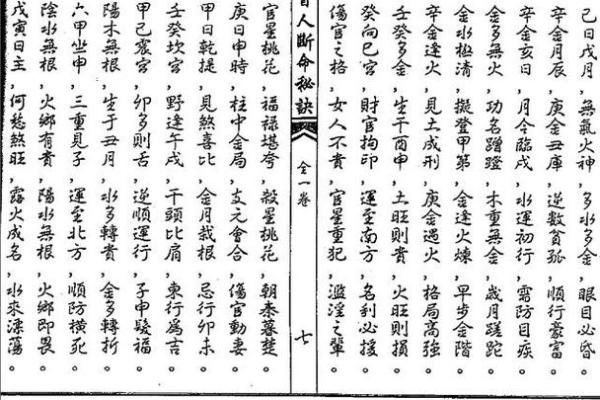 己日戌月,無氣火神,多水多金,眼目必昏。
辛金月辰,庚金丑庫,逆數貧孤,順行豪富。
辛金亥日,月令臨戌,水運初行,需防目疾。
金多無火,功名蹭蹬,木重無金,歲月蹉跎。
金水極清,擬登甲第,金逢火煉,早步金階。
辛金逢火,見土成刑,庚金遇火,格局高強。
壬癸多金,生于酉申,土旺則貴,火旺則損。
癸向巳宮,財官拘印,運至南方,名利必援。
傷官之格,女人不貴,官星重犯,濫淫之輩。
人斷命秘訣
全一卷
七
官星桃花,福祿堪夸,殺星桃花,朝秦暮楚。
庚日申時,柱中金局,支元會合,傷官動妻。
甲日乾提,見煞喜比,金月栽根,忌行卯未。
壬癸坎宮,野逢午戌,干頭比肩,東行為吉。
甲己震宮,卯多則舌,逆順運行,子申發福。
陽木無根,生于丑月,水多轉貴,金多轉折。
六甲坐申,三重見子,運至北方,順防橫死。
陰水無根,火鄉有貴,陽水無根,火鄉即畏。
戊寅日主,何愁煞旺,露火成名,水來漂蕩。